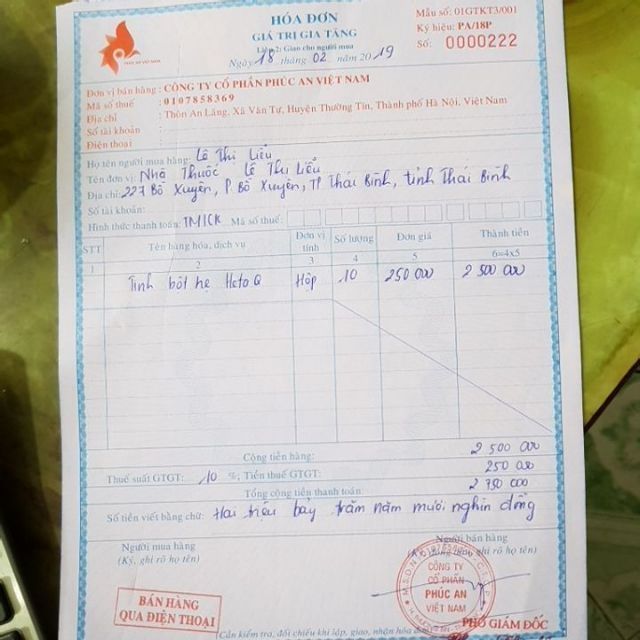 HÓA ĐƠN
GIÁ TRỊ GIA TĂNG
Liên 2: Giao cho người mua
Ngày 18 tháng 02 năm 2019
Mẫu số: 01GTKT3/001
Ký hiệu: PA/18P
Số: 0000222
Đơn vị bán hàng: CÔNG TY CỔ PHẦN PHÚC AN VIỆT NAM
Mã số thuế : 0107858369
Địa chỉ : Thôn An Lãng, Xã Văn Tự, Huyện Thường Tín, Thành phố Hà Nội, Việt Nam
Số tài khoản :
Điện thoại :
Họ tên người mua hàng: Lê Thị Liễu
Tên đơn vị: Nhà Thuốc Lê Thị Liễu
Địa chỉ: 227 Bồ Xuyên, P. Bồ Xuyên, TP Thái Bình, tỉnh Thái Bình
Số tài khoản:
Hình thức thanh toán: TM/CK Mã số thuế:
STT Tên hàng hóa, dịch vụ Đơn vị tính Số lượng Đơn giá Thành tiền
1 2 3 4 5 6=4x5
Tinh bột hẹ HetoQ Hộp 10 250 000 2 500 000
Cộng tiền hàng: 2 500 000
Thuế suất GTGT: 10 %; Tiền thuế GTGT: 250 000
Tổng cộng tiền thanh toán: 2 750 000
Số tiền viết bằng chữ: Hai triệu bảy trăm năm mươi nghìn đồng
Người mua hàng Người bán hàng
(Ký, ghi rõ họ tên)
CÔNG TY
CỔ PHẦN
PHÚC AN
VIỆT NAM
BÁN HÀNG
QUA ĐIỆN THOẠI
PHÓ GIÁM ĐỐC
(Cần kiểm tra, đối chiếu khi lập, giao, nhận hóa đơn)